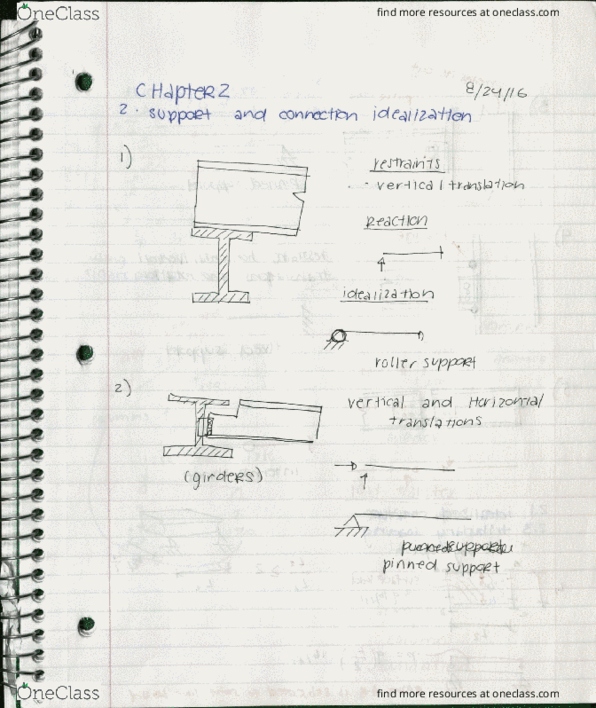 OneClass
find more resources at oneclass.com
CHapter 2
8/24/16
2. support and connection idealization
1)
restraints
· vertical translation
Reaction
idealization
roller support
2)
vertical and Horizontal
translations
(girders)
pinned support
OneClass
find more resources at oneclass.com